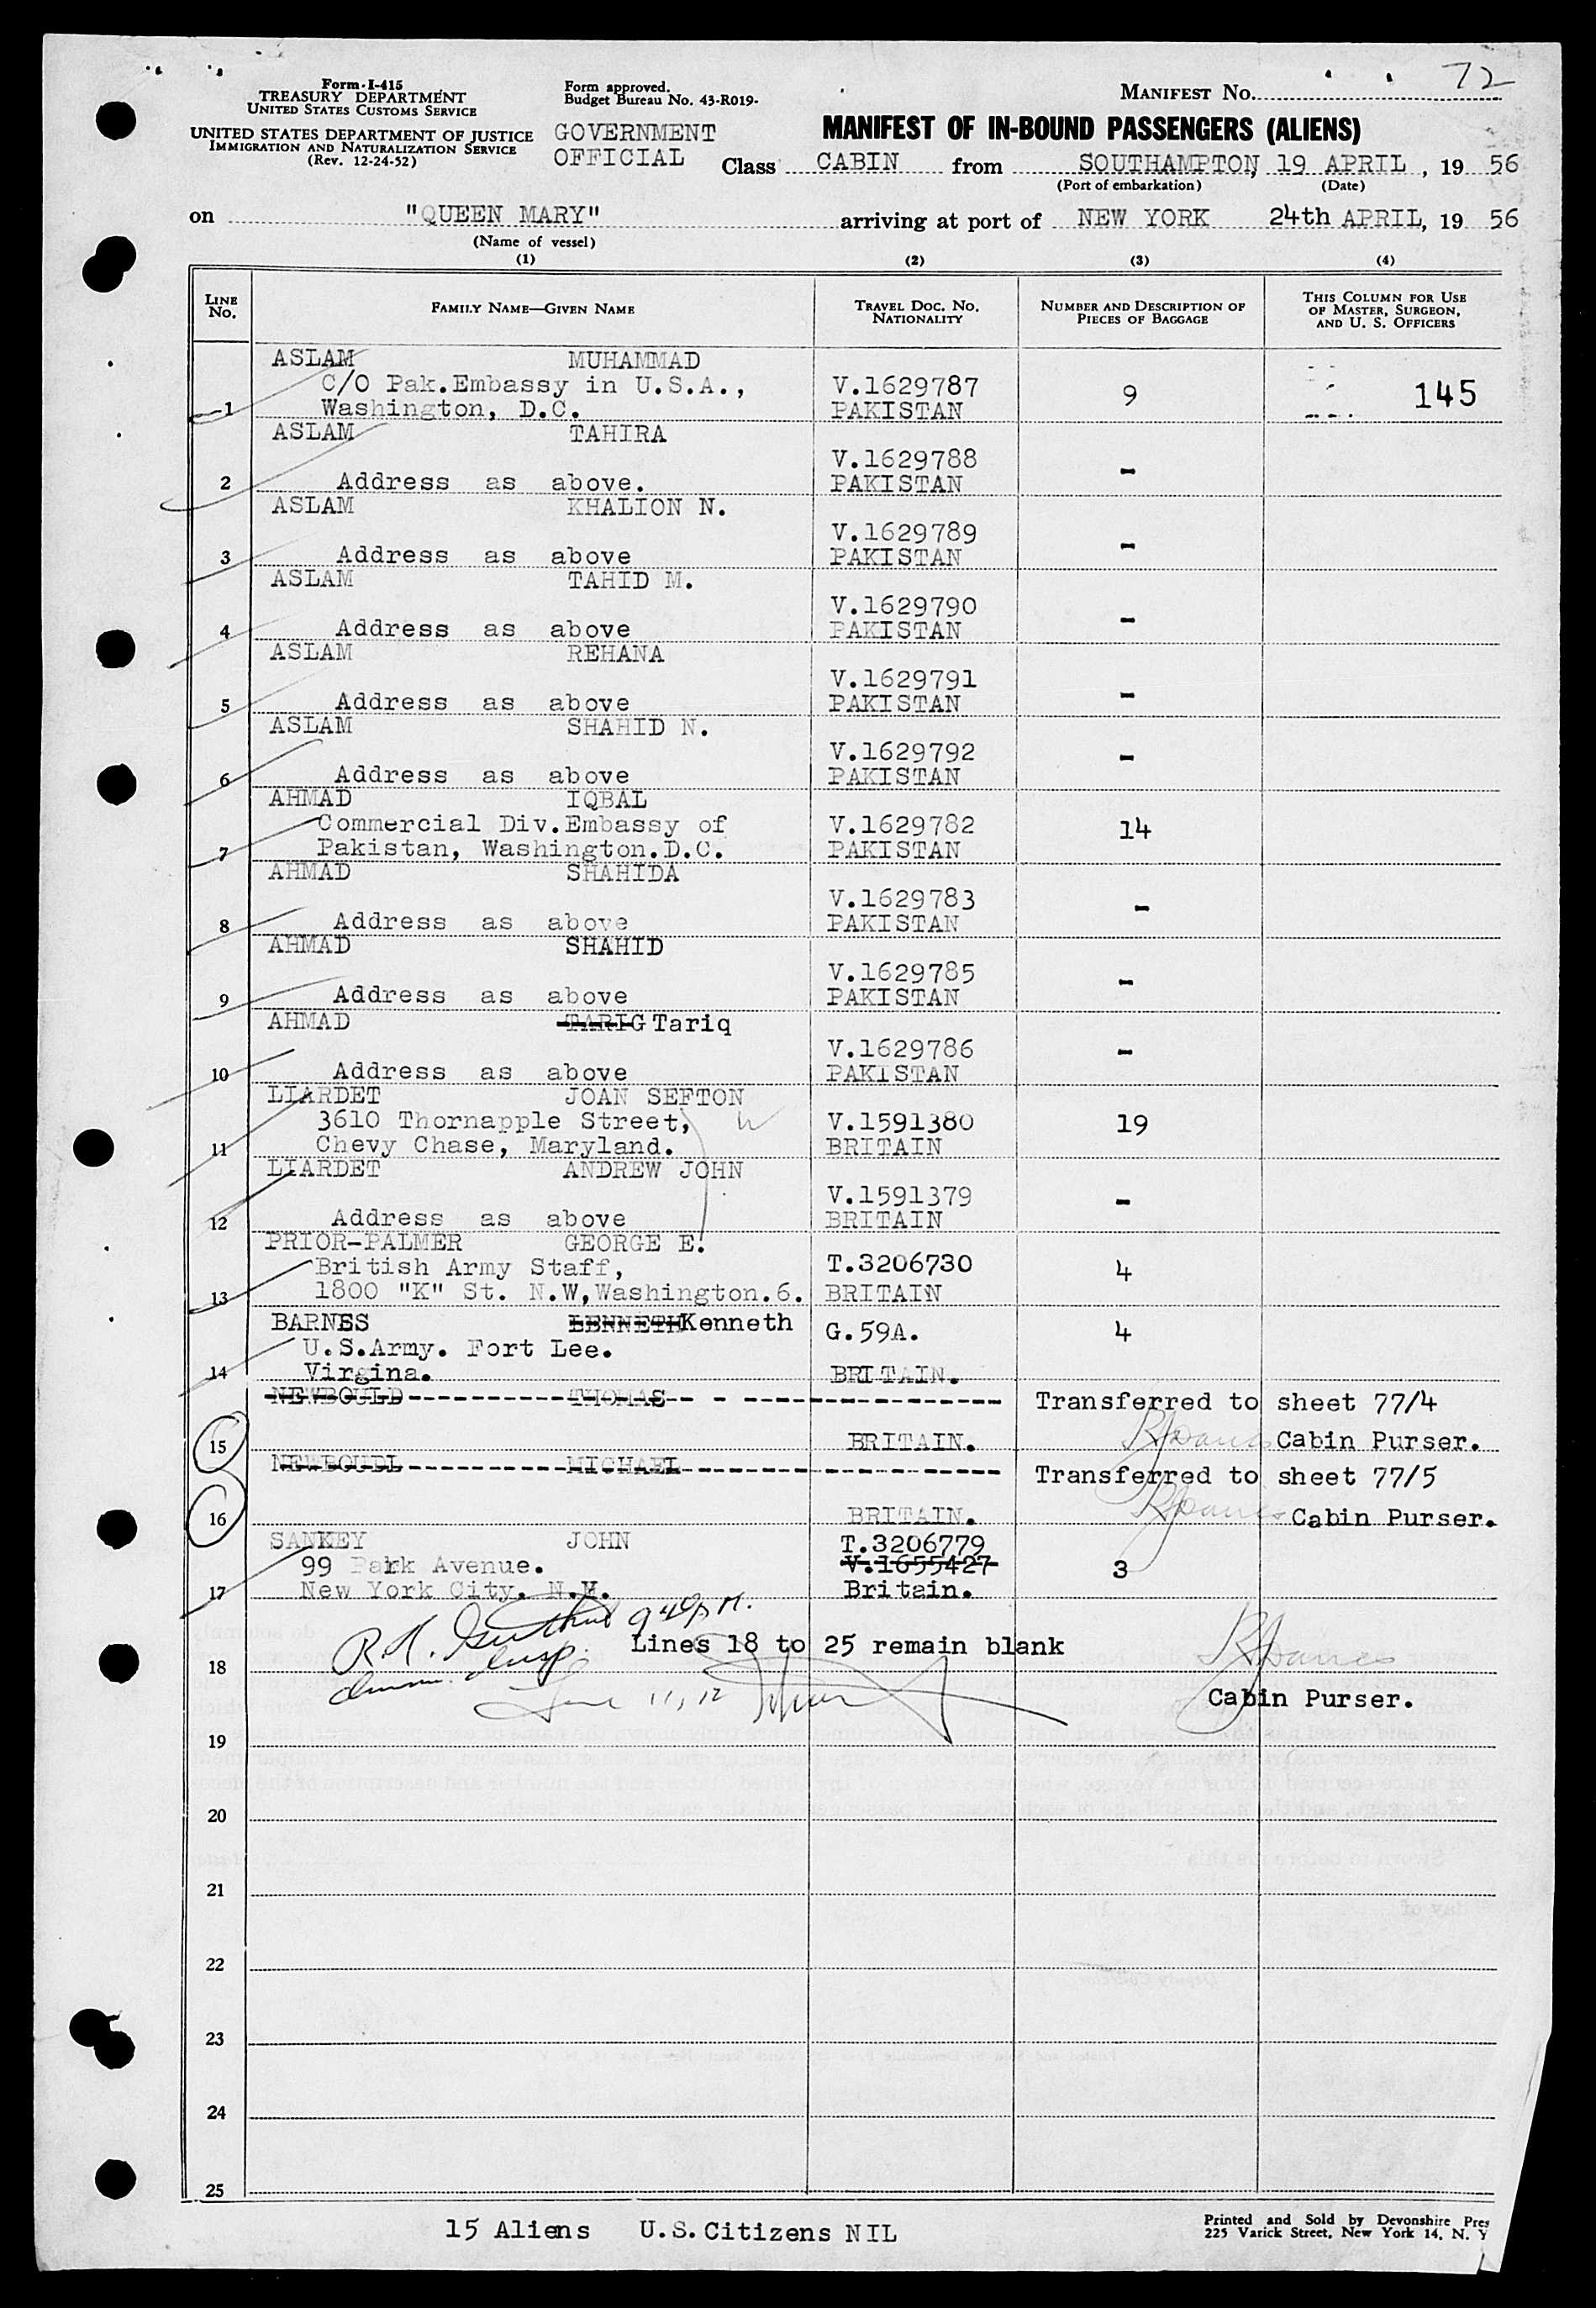 72
Form I-415
TREASURY DEPARTMENT
UNITED STATES CUSTOMS SERVICE
UNITED STATES DEPARTMENT OF JUSTICE
IMMIGRATION AND NATURALIZATION SERVICE
(Rev. 12-24-52)
Form approved.
Budget Bureau No. 43-R019-
MANIFEST No.
GOVERNMENT
OFFICIAL
MANIFEST OF IN-BOUND PASSENGERS (ALIENS)
Class CABIN from SOUTHAMPTON, 19 APRIL, 19 56
(Port of embarkation) (Date)
on "QUEEN MARY" arriving at port of NEW YORK 24th APRIL, 19 56
(Name of vessel)
(1) (2) (3) (4)
LINE No. FAMILY NAME—GIVEN NAME TRAVEL DOC. NO. NATIONALITY NUMBER AND DESCRIPTION OF PIECES OF BAGGAGE THIS COLUMN FOR USE OF MASTER, SURGEON, AND U. S. OFFICERS
ASLAM MUHAMMAD
C/O Pak.Embassy in U.S.A., V.1629787 9 145
1 Washington, D.C. PAKISTAN
ASLAM TAHIRA
V.1629788 -
2 Address as above. PAKISTAN
ASLAM KHALION N.
V.1629789 -
3 Address as above PAKISTAN
ASLAM TAHID M.
V.1629790 -
4 Address as above PAKISTAN
ASLAM REHANA
V.1629791 -
5 Address as above PAKISTAN
ASLAM SHAHID N.
V.1629792 -
6 Address as above PAKISTAN
AHMAD IQBAL
Commercial Div.Embassy of V.1629782 14
7 Pakistan, Washington.D.C. PAKISTAN
AHMAD SHAHIDA
V.1629783 -
8 Address as above PAKISTAN
AHMAD SHAHID
V.1629785 -
9 Address as above PAKISTAN
AHMAD TARIG Tariq
V.1629786 -
10 Address as above PAKISTAN
LIARDET JOAN SEFTON
3610 Thornapple Street, V.1591380 19
11 Chevy Chase, Maryland. BRITAIN
LIARDET ANDREW JOHN
V.1591379 -
12 Address as above BRITAIN
PRIOR-PALMER GEORGE E.
British Army Staff, T.3206730 4
13 1800 "K" St. N.W,Washington.6. BRITAIN
BARNES KENNETH Kenneth G.59A. 4
U.S.Army. Fort Lee.
14 Virgina. BRITAIN.
NEWBOULD THOMAS Transferred to sheet 77/4
15 BRITAIN. Cabin Purser.
NEWBOUDL MICHAEL Transferred to sheet 77/5
16 BRITAIN. Cabin Purser.
SANKEY JOHN T.3206779
99 Park Avenue. V.1655427 3
17 New York City. N.Y. Britain.
Lines 18 to 25 remain blank
18
Cabin Purser.
Line 11, 12
19
20
21
22
23
24
25
15 Aliens U.S.Citizens NIL
Printed and Sold by Devonshire Pres
225 Varick Street, New York 14, N. Y